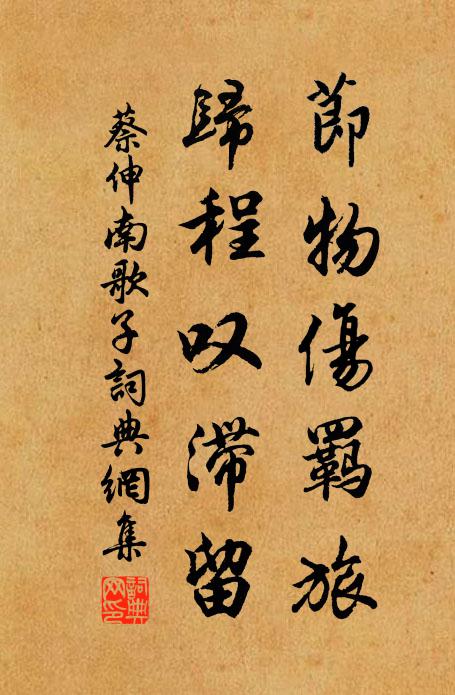 節物傷羈旅
歸程叹滯留
蔡伸南歌子詞典網集
詞典網印